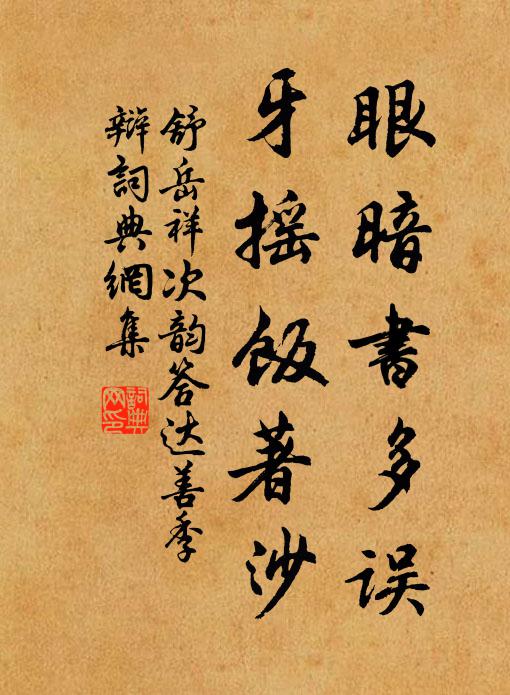 眼暗書多误
牙摇飯著沙
舒岳祥次韵答达善季
辩詞典網集
詞典网印